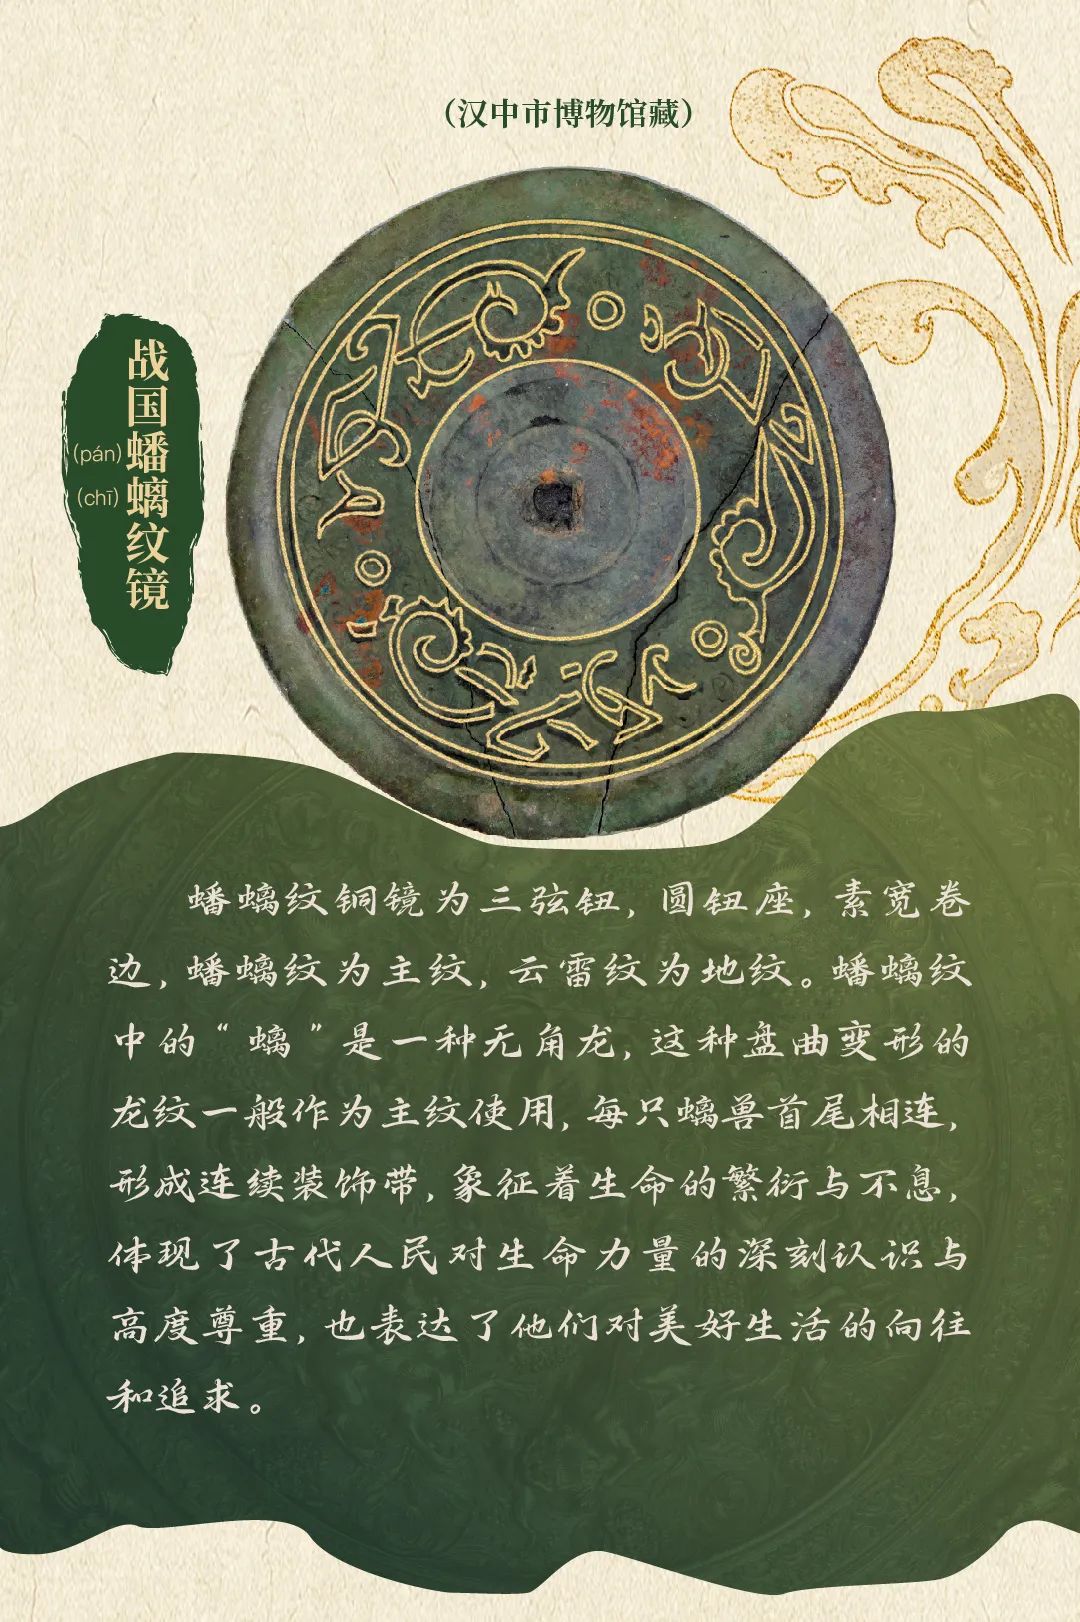 （汉中市博物馆藏）
战国蟠螭纹镜
(pán)
(chī)
蟠螭纹铜镜为三弦钮，圆钮座，素宽卷
边，蟠螭纹为主纹，云雷纹为地纹。蟠螭纹
中的“螭”是一种无角龙，这种盘曲变形的
龙纹一般作为主纹使用，每只螭兽首尾相连，
形成连续装饰带，象征着生命的繁衍与不息，
体现了古代人民对生命力量的深刻认识与
高度尊重，也表达了他们对美好生活的向往
和追求。